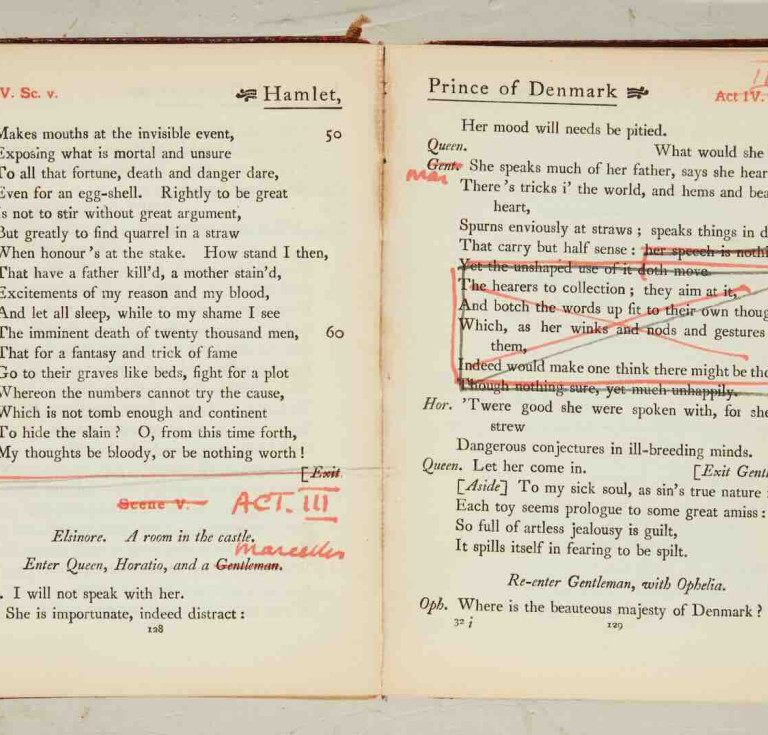 V. Sc. v.
Hamlet,
Makes mouths at the invisible event, 50
Exposing what is mortal and unsure
To all that fortune, death and danger dare,
Even for an egg-shell. Rightly to be great
Is not to stir without great argument,
But greatly to find quarrel in a straw
When honour's at the stake. How stand I then,
That have a father kill'd, a mother stain'd,
Excitements of my reason and my blood,
And let all sleep, while to my shame I see
The imminent death of twenty thousand men, 60
That for a fantasy and trick of fame
Go to their graves like beds, fight for a plot
Whereon the numbers cannot try the cause,
Which is not tomb enough and continent
To hide the slain? O, from this time forth,
My thoughts be bloody, or be nothing worth!
[Exit.
Scene V. ACT. III
Elsinore. A room in the castle.
Marcellus
Enter Queen, Horatio, and a Gentleman.
. I will not speak with her.
She is importunate, indeed distract:
128
Prince of Denmark
Act IV.
Her mood will needs be pitied.
Queen. What would she
Gent. She speaks much of her father, says she hear
Mar
There's tricks i' the world, and hems and bea
heart,
Spurns enviously at straws; speaks things in d
That carry but half sense: her speech is nothi
Yet the unshaped use of it doth move
The hearers to collection; they aim at it,
And botch the words up fit to their own thoug
Which, as her winks and nods and gestures
them,
Indeed would make one think there might be tho
Though nothing sure, yet much unhappily.
Hor. 'Twere good she were spoken with, for she
strew
Dangerous conjectures in ill-breeding minds.
Queen. Let her come in. [Exit Gentl
[Aside] To my sick soul, as sin's true nature
Each toy seems prologue to some great amiss:
So full of artless jealousy is guilt,
It spills itself in fearing to be spilt.
Re-enter Gentleman, with Ophelia.
Oph. Where is the beauteous majesty of Denmark?
32 i
129